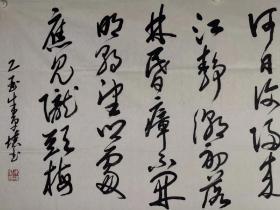 何日復歸來
江靜潮初落
林昏瘴不開
明朝望鄉處
應見隴頭梅
書